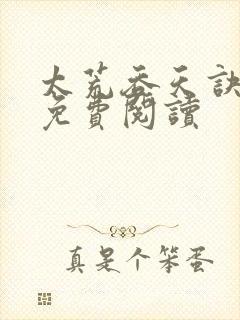 太荒吞天訣
免費閱讀
真是个笨蛋